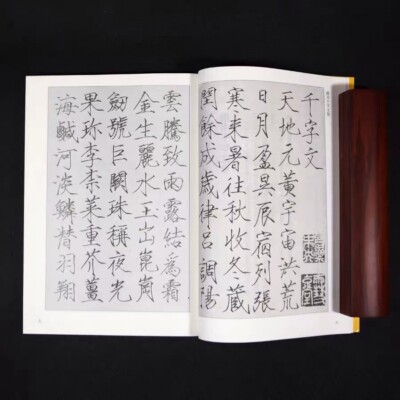 千字文
天地元黃宇宙洪荒
日月盈昃辰宿列張
寒来暑往秋收冬藏
閏餘成歲律呂調陽
雲騰致雨露結爲霜
金生麗水玉出崑崗
劒號巨闕珠稱夜光
果珍李柰菜重芥薑
海鹹河淡鱗潜羽翔